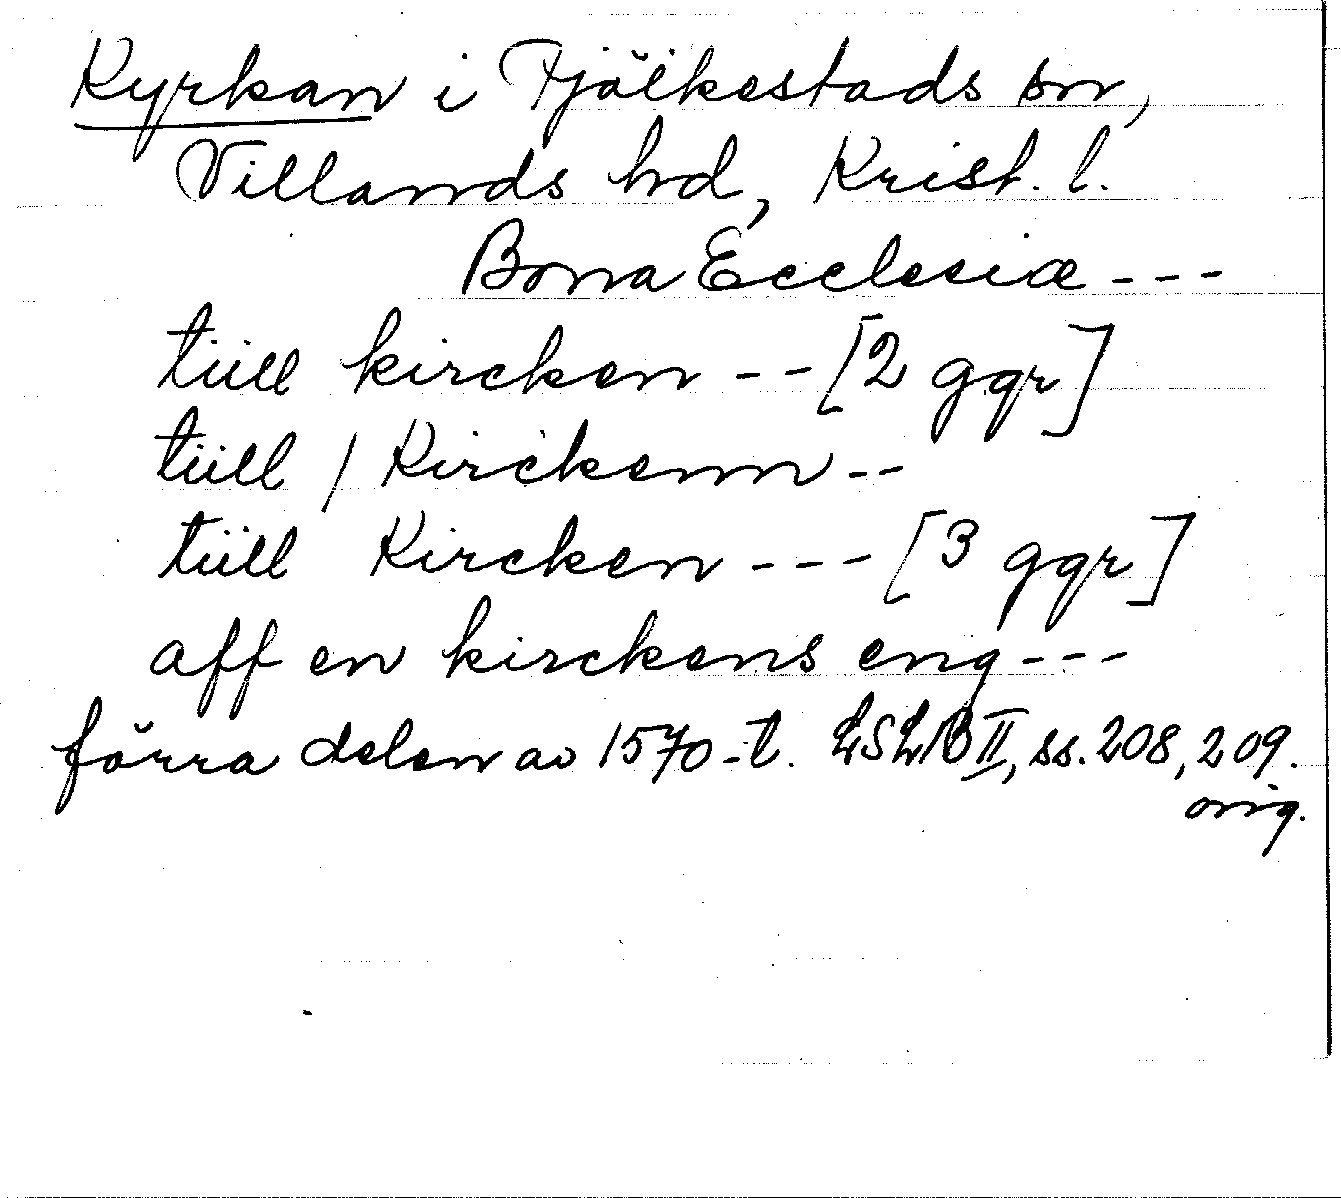 Kyrkan i Fjälkestads sn,
Villands hd, Krist. l.
Bona Ecclesiæ ---
tüll kircken -- [2 ggr]
tüll / Kirckenn --
tüll Kircken --- [3 ggr]
aff en kirckens eng ---
förra delen av 1570-t. LSLB II, ss. 208, 209.
orig.